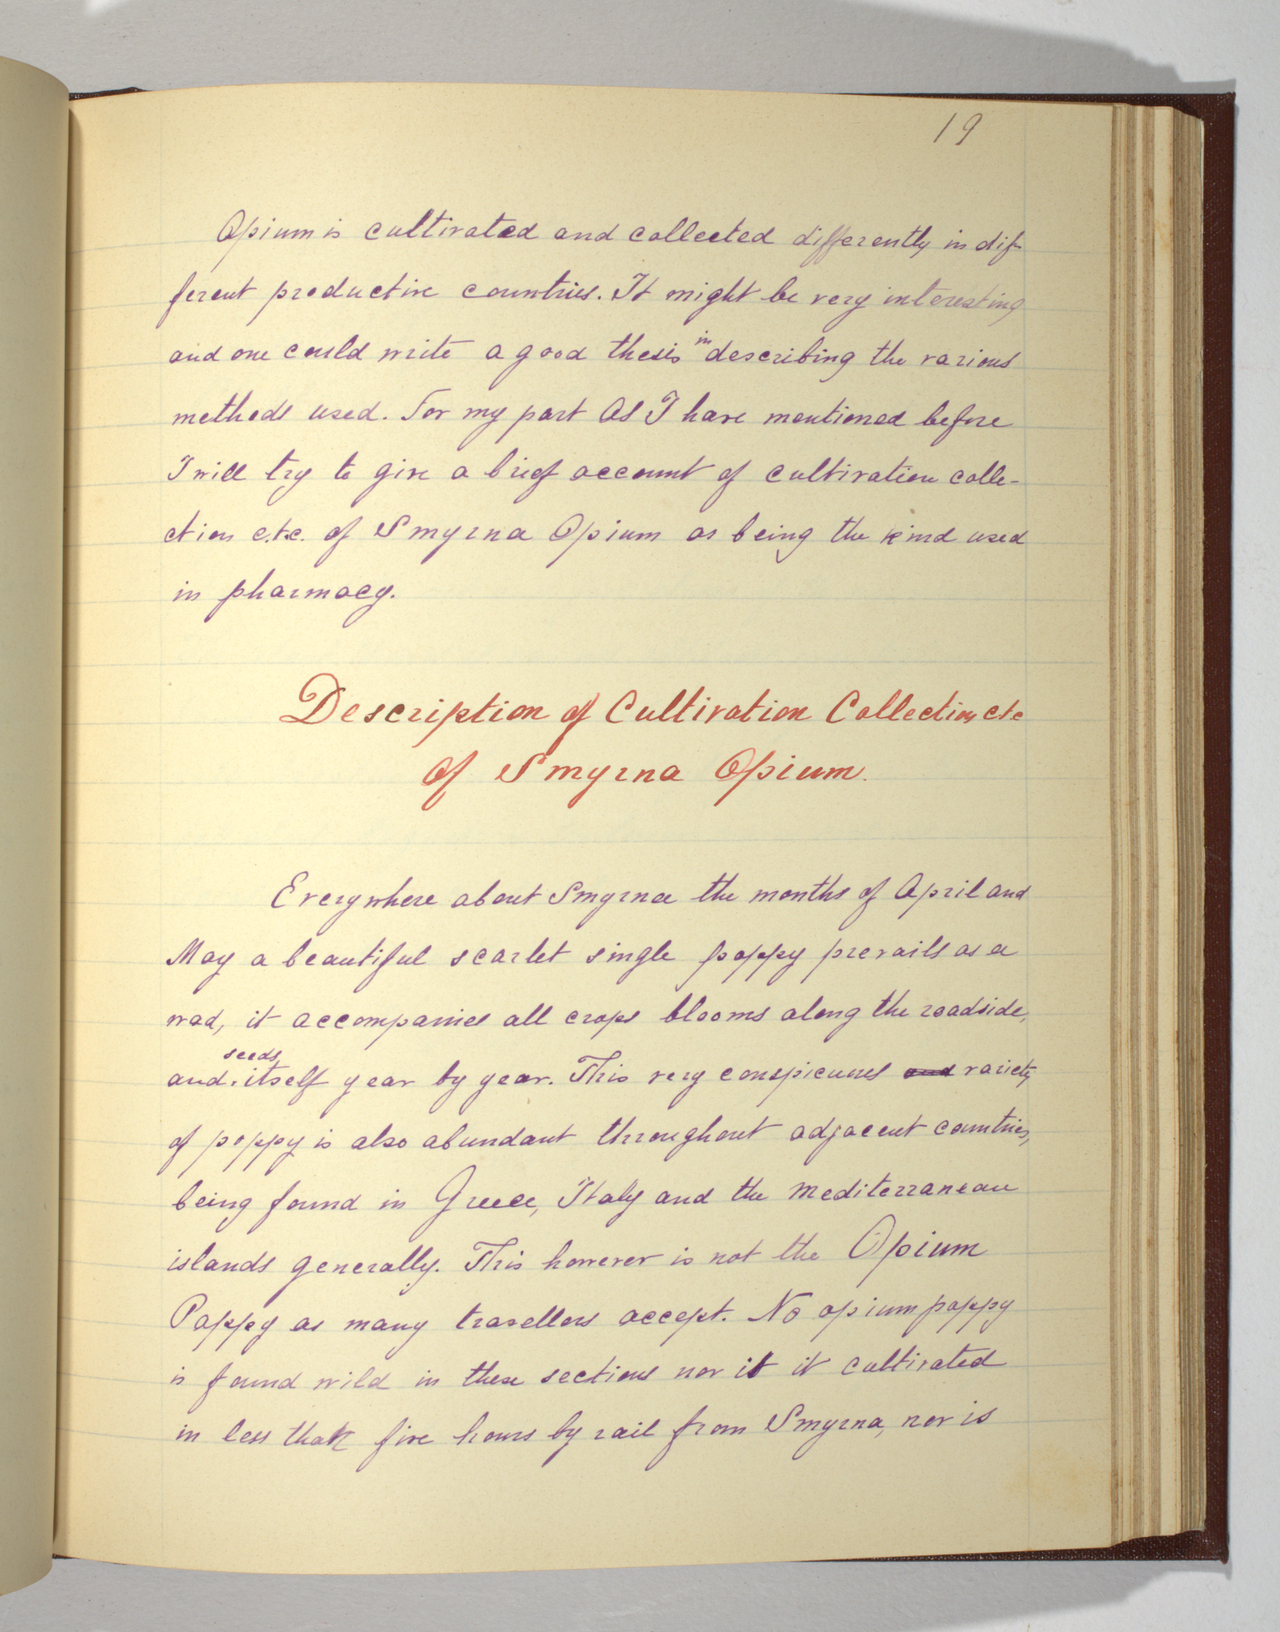 19
Opium is cultivated and collected differently in dif-
ferent productive countries. It might be very interesting
and one could write a good thesis in describing the various
methods used. For my part As I have mentioned before
I will try to give a brief account of cultivation colle-
ction etc. of Smyrna Opium as being the kind used
in pharmacy.
Description of Cultivation Collection etc
of Smyrna Opium.
Everywhere about Smyrna the months of April and
May a beautiful scarlet single poppy prevails as a
wad, it accompanies all crops blooms along the roadside,
and seeds itself year by year. This very conspicuous and variety
of poppy is also abundant throughout adjacent countries,
being found in Greece, Italy and the Mediterranean
islands generally. This however is not the Opium
Poppy as many travellers accept. No opium poppy
is found wild in these sections nor it it cultivated
in less than five hours by rail from Smyrna, nor is